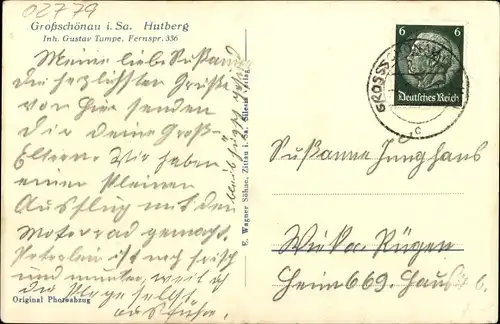 02779
Großschönau i. Sa. Hutberg
Inh. Gustav Tampe, Fernspr. 336
Meine liebe Sußanne
die herzlichsten Grüße
von hier senden
Dir deine Groß-
Eltern. Wir haben
einen kleinen
Ausflug mit dem
Motorrad gemacht.
Peterlein ist noch frisch
und munter, weil ich
die Plage selbst
ausführe.
Original Photoabzug
E. Wagner Söhne, Zittau i. Sa.
6 6
Deutsches Reich
GROSSS
Sußanne Junghans
Wiek a. Rügen
Heim 669. Haus 6.